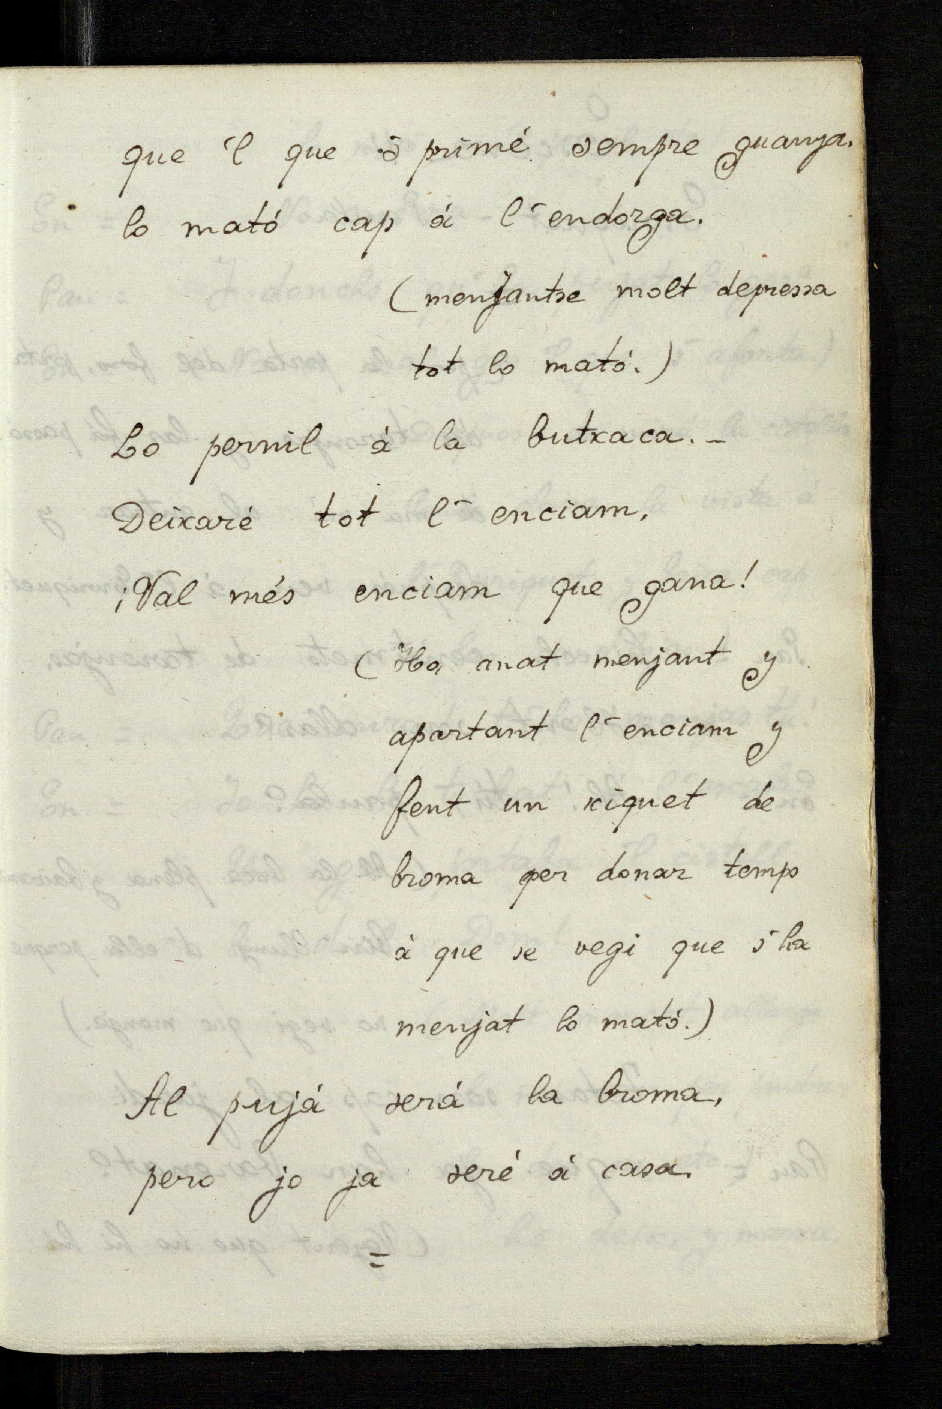 que 'l que 's primé sempre guanya.
lo mató cap á l' endorga.
(menjantse molt depressa
tot lo mató.)
Lo pernil á la butxaca. –
Deixaré tot l' enciam.
¡Val més enciam que gana!
(Ha anat menjant y
apartant l' enciam y
fent un xiquet de
broma per donar temps
á que se vegi que s' ha
menjat lo mató.)
Al pujá será la broma,
pero jo ja seré á casa.
=